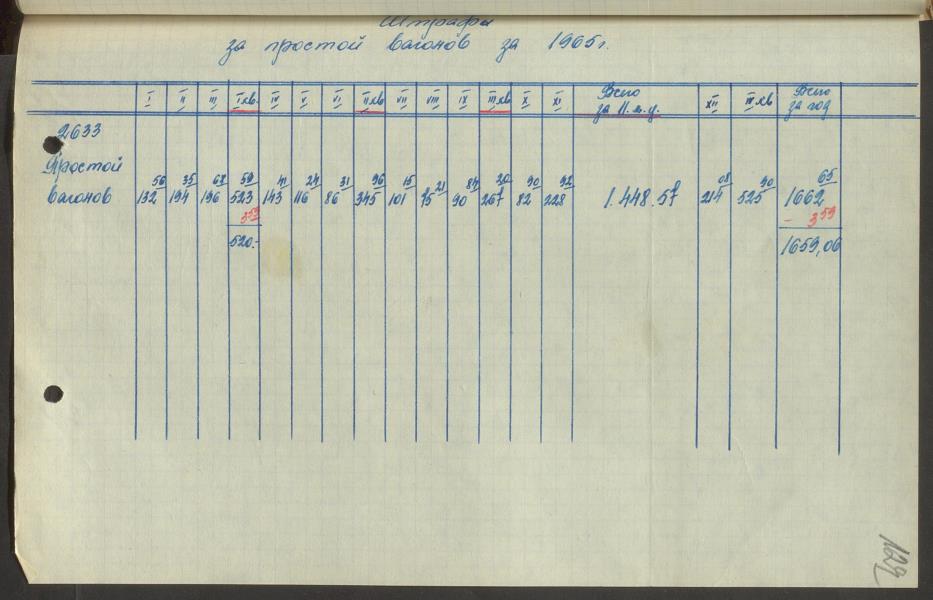 Штрафы
за простой вагонов за 1965г.
I II III I кв. IV V VI II кв VII VIII IX III кв X XI Всего за 11. м. у. XII IV кв Всего за год
2633
Простой
вагонов 132 56 194 35 196 68 523 59 143 41 116 24 86 31 345 96 101 15 75 21 90 84 267 20 82 90 228 92 1.448.57 214 08 525 90 1662 65
3 59 - 3 59
520.- 1659,06
162